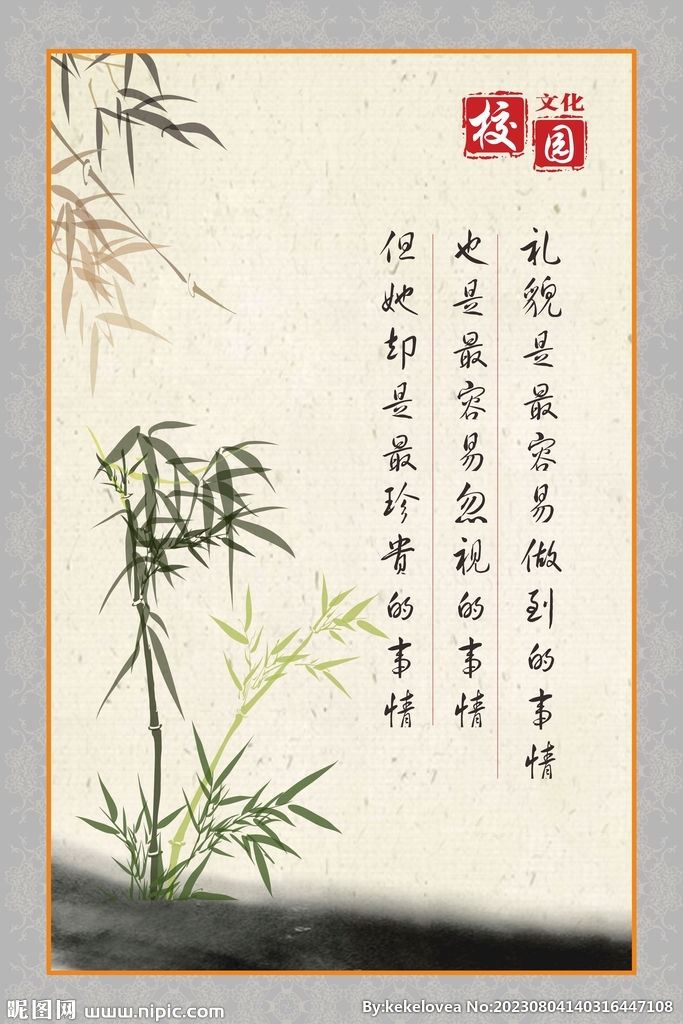 校园
文化
礼貌是最容易做到的事情
也是最容易忽视的事情
但她却是最珍贵的事情
昵图网 www.nipic.com
By:kekelovea No:20230804140316447108